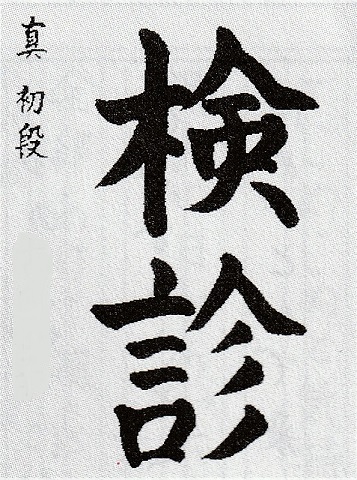 検診
真 初段